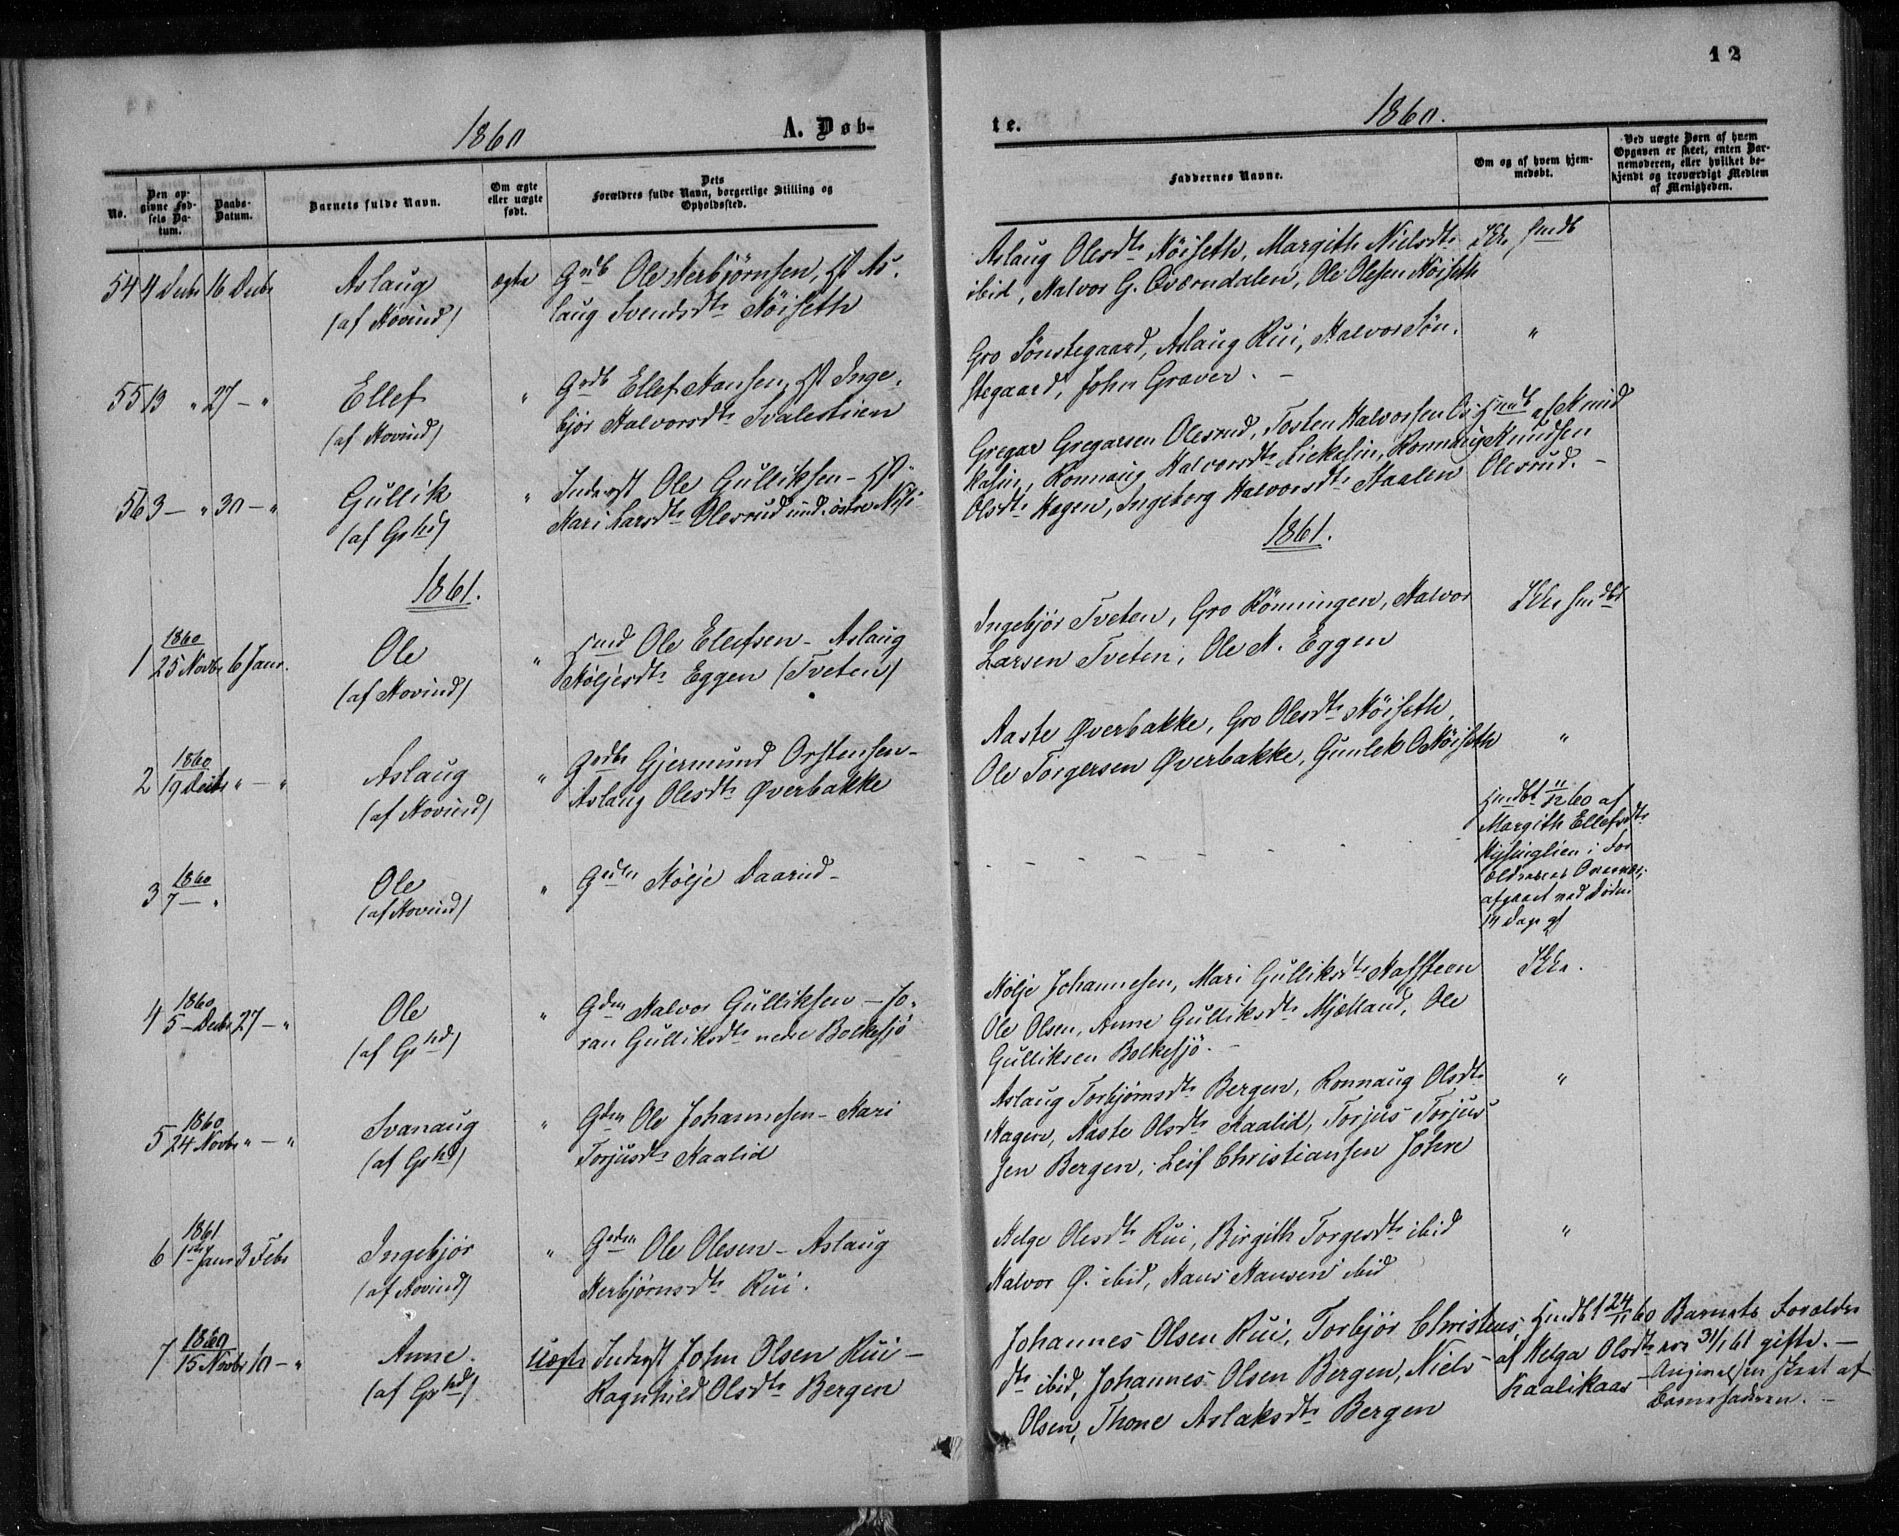 12
1860 A. Døb-
te. 1860.
No.
Den op-
givne Fød-
sels Da-
tum.
Daabs-
Datum.
Barnets fulde Navn.
Om ægte
eller uægte
født.
Dets
Forældres fulde Navn, borgerlige Stilling og
Opholdssted.
Faddernes Navne.
Om og af hvem hjem-
medøbt.
Ved uægte Børn af hvem
Opgaven er skeet, enten Bar-
nemoderen, eller hvilket be-
kjendt og troværdigt Medlem
af Menigheden.
54 4 Decbr 16 Decbr Aslaug
(af Hovind)
ægte
Gdb Ole Herbjørnsen, Hst As-
laug Svendsdtr Nöiseth
Aslaug Olesdtr Nöiseth, Margith Nielsdtr
ibid, Halvor G. Qværndalen, Ole Olesen Nöiseth
55 13 " 27 - " Ellef
(af Hovind)
"
Gdb Ellef Hansen, Hst Inge-
bjør Halvorsdtr Svalestuen
Gro Sønstegaard, Aslaug Rui, Halvor Søn-
stegaard, John Graver. -
"
56 3 - " 30 - " Gullik
(af Grhd)
"
Inderst Ole Gulliksen - Hst
Mari Larsdtr Olesrud
Gregar Gregarsen Olesrud, Tosten Halvorsen
Ronnaug Halvorsdtr
Olsdtr Hagen, Ingeborg Halvorsdtr Haalen
af Knud
Knudsen
Olesrud. -
1861.
1861.
1 1860
25 Novbr 6 Janr. Ole
(af Hovind)
"
Ole Elefsen - Aslaug
Høljesdtr Eggen (Tveten)
Ingebjør Tveten, Gro Rönningen, Halvor
Larsen Tveten, Ole H. Eggen
2 1860
19 Decbr " - " Aslaug
(af Hovind)
"
Gdbr Gjermund Orstensen -
Aslaug Olesdtr Øverbakke
Aaste Øverbakke, Gro Olesdtr Nöiseth,
Ole Torgersen Øverbakke, Gunlek O Nöiseth
"
3 1860
7 - " Ole
(af Hovind)
"
Hölje Daarud -
Hmdbt 11/12 60 af
Margith Ellefsdtr
14 Dage gl
4 1860
5 - Decbr 27 - " Ole
(af Grhd)
"
Gdm Halvor Gulliksen - Jo-
ran Gulliksdtr nedre Bolkesjö
Hölje Johannesen, Mari Gulliksdtr
Ole Olsen, Anne Gulliksdtr Mjælland, Ole
Gulliksen Bolkesjö. -
Ikke.
5 1860
24 Novbr " - " Svanaug
(af Grhd)
"
Gdm Ole Johannesen - Kari
Torjusdtr Kaalid
Aslaug Torbjørnsdtr Bergen, Ronnaug Olsdtr
Hagen, Aaste Olsdtr Kaalid, Torjus Torjus-
sen Bergen, Leif Christiansen Johre
"
6 1861
1ste Janr 3 Febr Ingebjør
(af Hovind)
"
Ole Olesen - Aslaug
Herbjørnsdtr Rui.
Helge Olesdtr Rui, Birgith Torgersdtr ibid
Halvor Ø. ibid, Hans Hansen ibid
"
7 1860
15 Novbr 10 - " Anne.
(af Grhd)
Uægte
Inderst John Olsen Rui -
Ragnhild Olsdtr Bergen
Johannes Olsen Rui, Torbjör Christens-
dtr ibid, Johannes Olsen Bergen, Niels
Olsen, Thone Aslaksdtr Bergen
Hmdbt 24/11 60
af Helga Olsdtr
Kaalikaas
Barnets Foræl­dre
31/1 61 gifte. -
Angivelsen skeet af
Barnefaderen. -